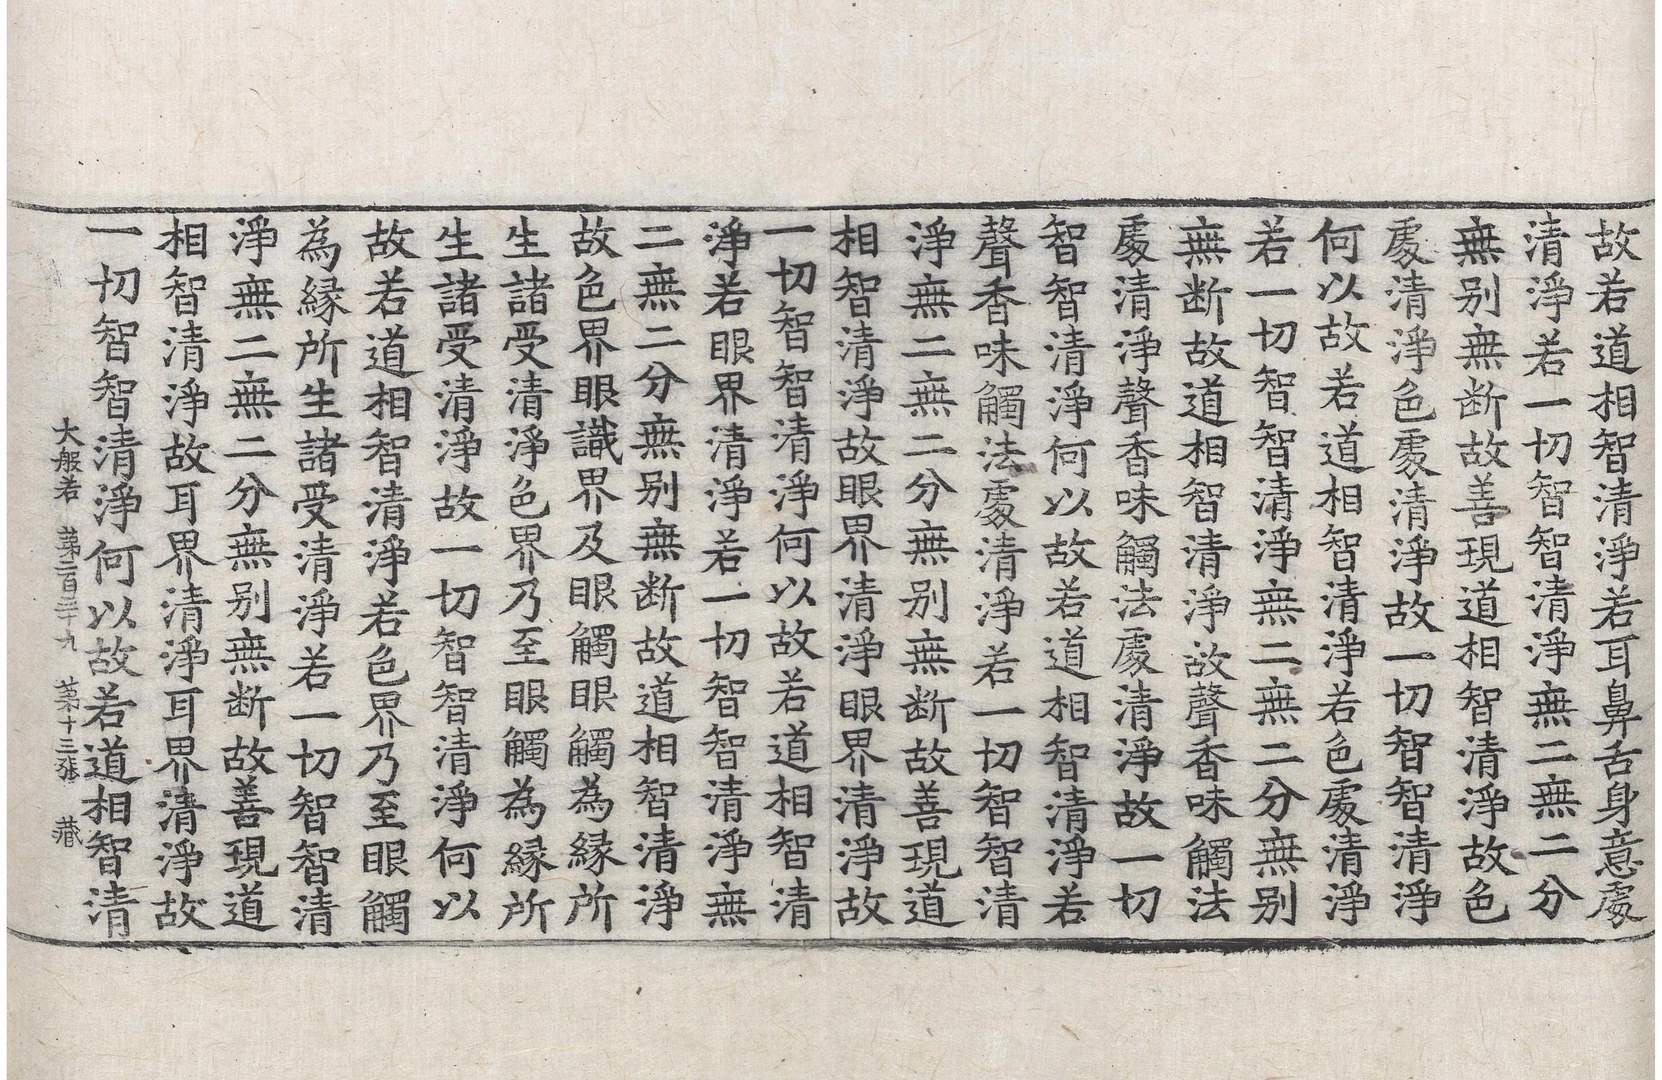 故若道相智清淨若耳鼻舌身意處
清淨若一切智智清淨無二無二分
無別無断故善現道相智清淨故色
處清淨色處清淨故一切智智清淨
何以故若道相智清淨若色處清淨
若一切智智清淨無二無二分無別
無断故道相智清淨故聲香味觸法
處清淨聲香味觸法處清淨故一切
智智清淨何以故若道相智清淨若
聲香味觸法處清淨若一切智智清
淨無二無二分無別無断故善現道
相智清淨故眼界清淨眼界清淨故
一切智智清淨何以故若道相智清
淨若眼界清淨若一切智智清淨無
二無二分無別無断故道相智清淨
故色界眼識界及眼觸眼觸為縁所
生諸受清淨色界乃至眼觸為縁所
生諸受清淨故一切智智清淨何以
故若道相智清淨若色界乃至眼觸
為縁所生諸受清淨若一切智智清
淨無二無二分無別無断故善現道
相智清淨故耳界清淨耳界清淨故
一切智智清淨何以故若道相智清
大般若 苐二百三十九 苐十三張